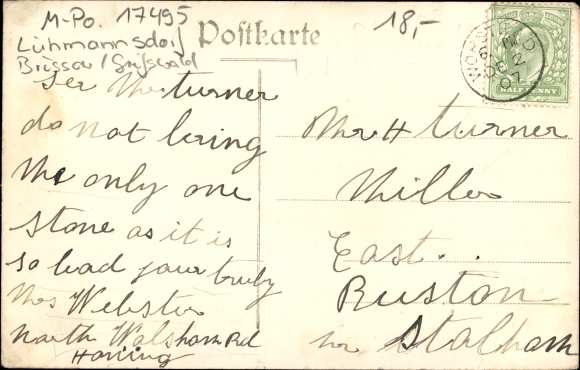 M-Po. 17495
18,-
Lühmannsdorf
Brüssow / Greifswald
Postkarte
WORSTEAD
6 PM
DE 2
07
HALF PENNY
Mr turner
do not bring
the only one
stone as it is
so bad your truly
Mrs Webster
North Walsham Rd
Honing
Mr H turner
Miller
East
Ruston
nr Stalham